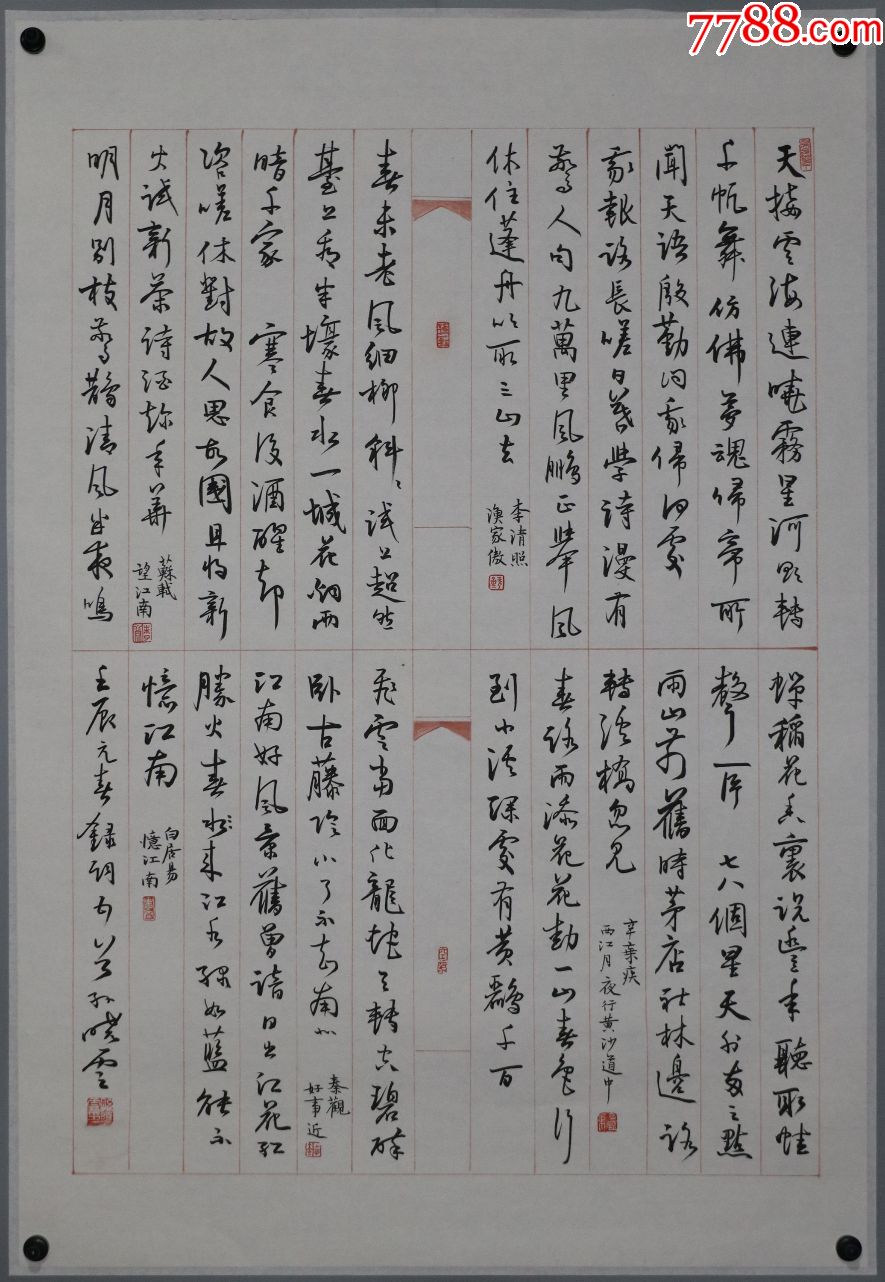 7788.com
天接雲濤連曉霧星河欲轉
千帆舞 仿佛夢魂歸帝所
聞天語殷勤問我歸何處
我報路長嗟日暮學詩漫有
驚人句九萬里風鵬正舉風
休住蓬舟吹取三山去
李清照
漁家傲
春未老風細柳斜〻試上超然
臺上看半壕春水一城花烟雨
暗千家 寒食後酒醒却
咨嗟休對故人思故國且將新
火試新茶詩酒趁年華
蘇軾
望江南
明月別枝驚鵲清風半夜鳴
蟬稻花香裏說豐年聽取蛙
聲一片 七八個星天外兩三點
雨山前舊時茅店社林邊路
轉溪橋忽見
辛棄疾
西江月夜行黃沙道中
春路雨添花花動一山春色行
到小溪深處有黃鸝千百
飛雲當面化龍蛇夭轉空碧醉
卧古藤陰下了不知南北
秦觀
好事近
江南好風景舊曾諳日出江花紅
勝火春水來江水綠如藍能不
憶江南
白居易
憶江南
壬辰元春錄詞六首孫曉雲